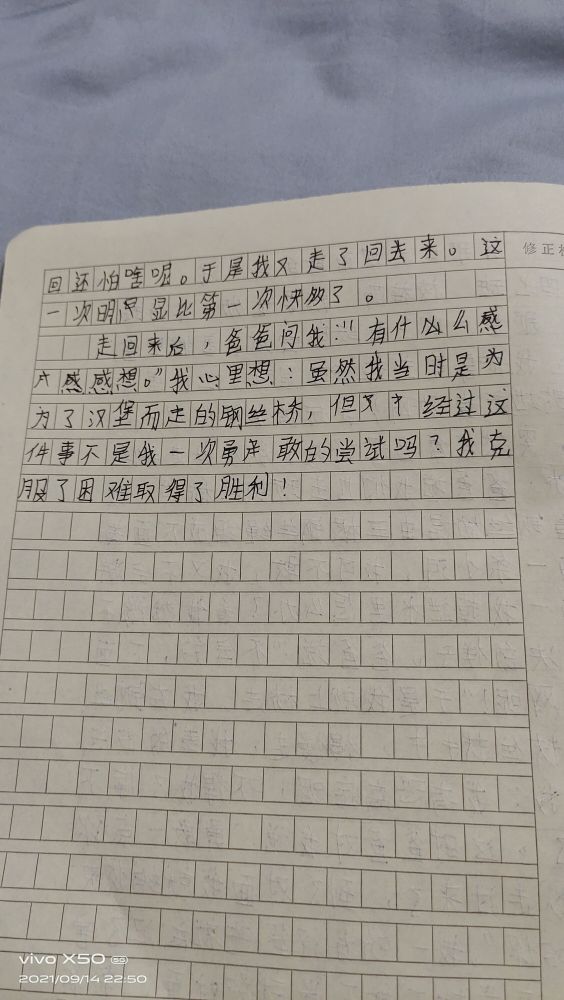 修正栏
回还怕啥呢。于是我又走了回去来。这
一次明显比第一次快的了。
走回来后，爸爸问我："有什么么感
感感想。"我心里想：虽然我当时是为
为了汉堡而走的钢丝桥，但 经过这
件事不是我一次勇敢的尝试吗？我克
服了困难取得了胜利！
vivo X50 5G
2021/09/14 22:50